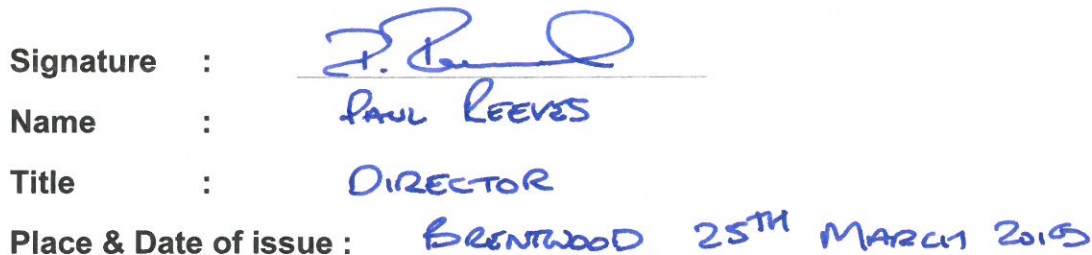 Signature : P. Reeves
Name : PAUL REEVES
Title : DIRECTOR
Place & Date of issue : BRENTWOOD 25TH MARCH